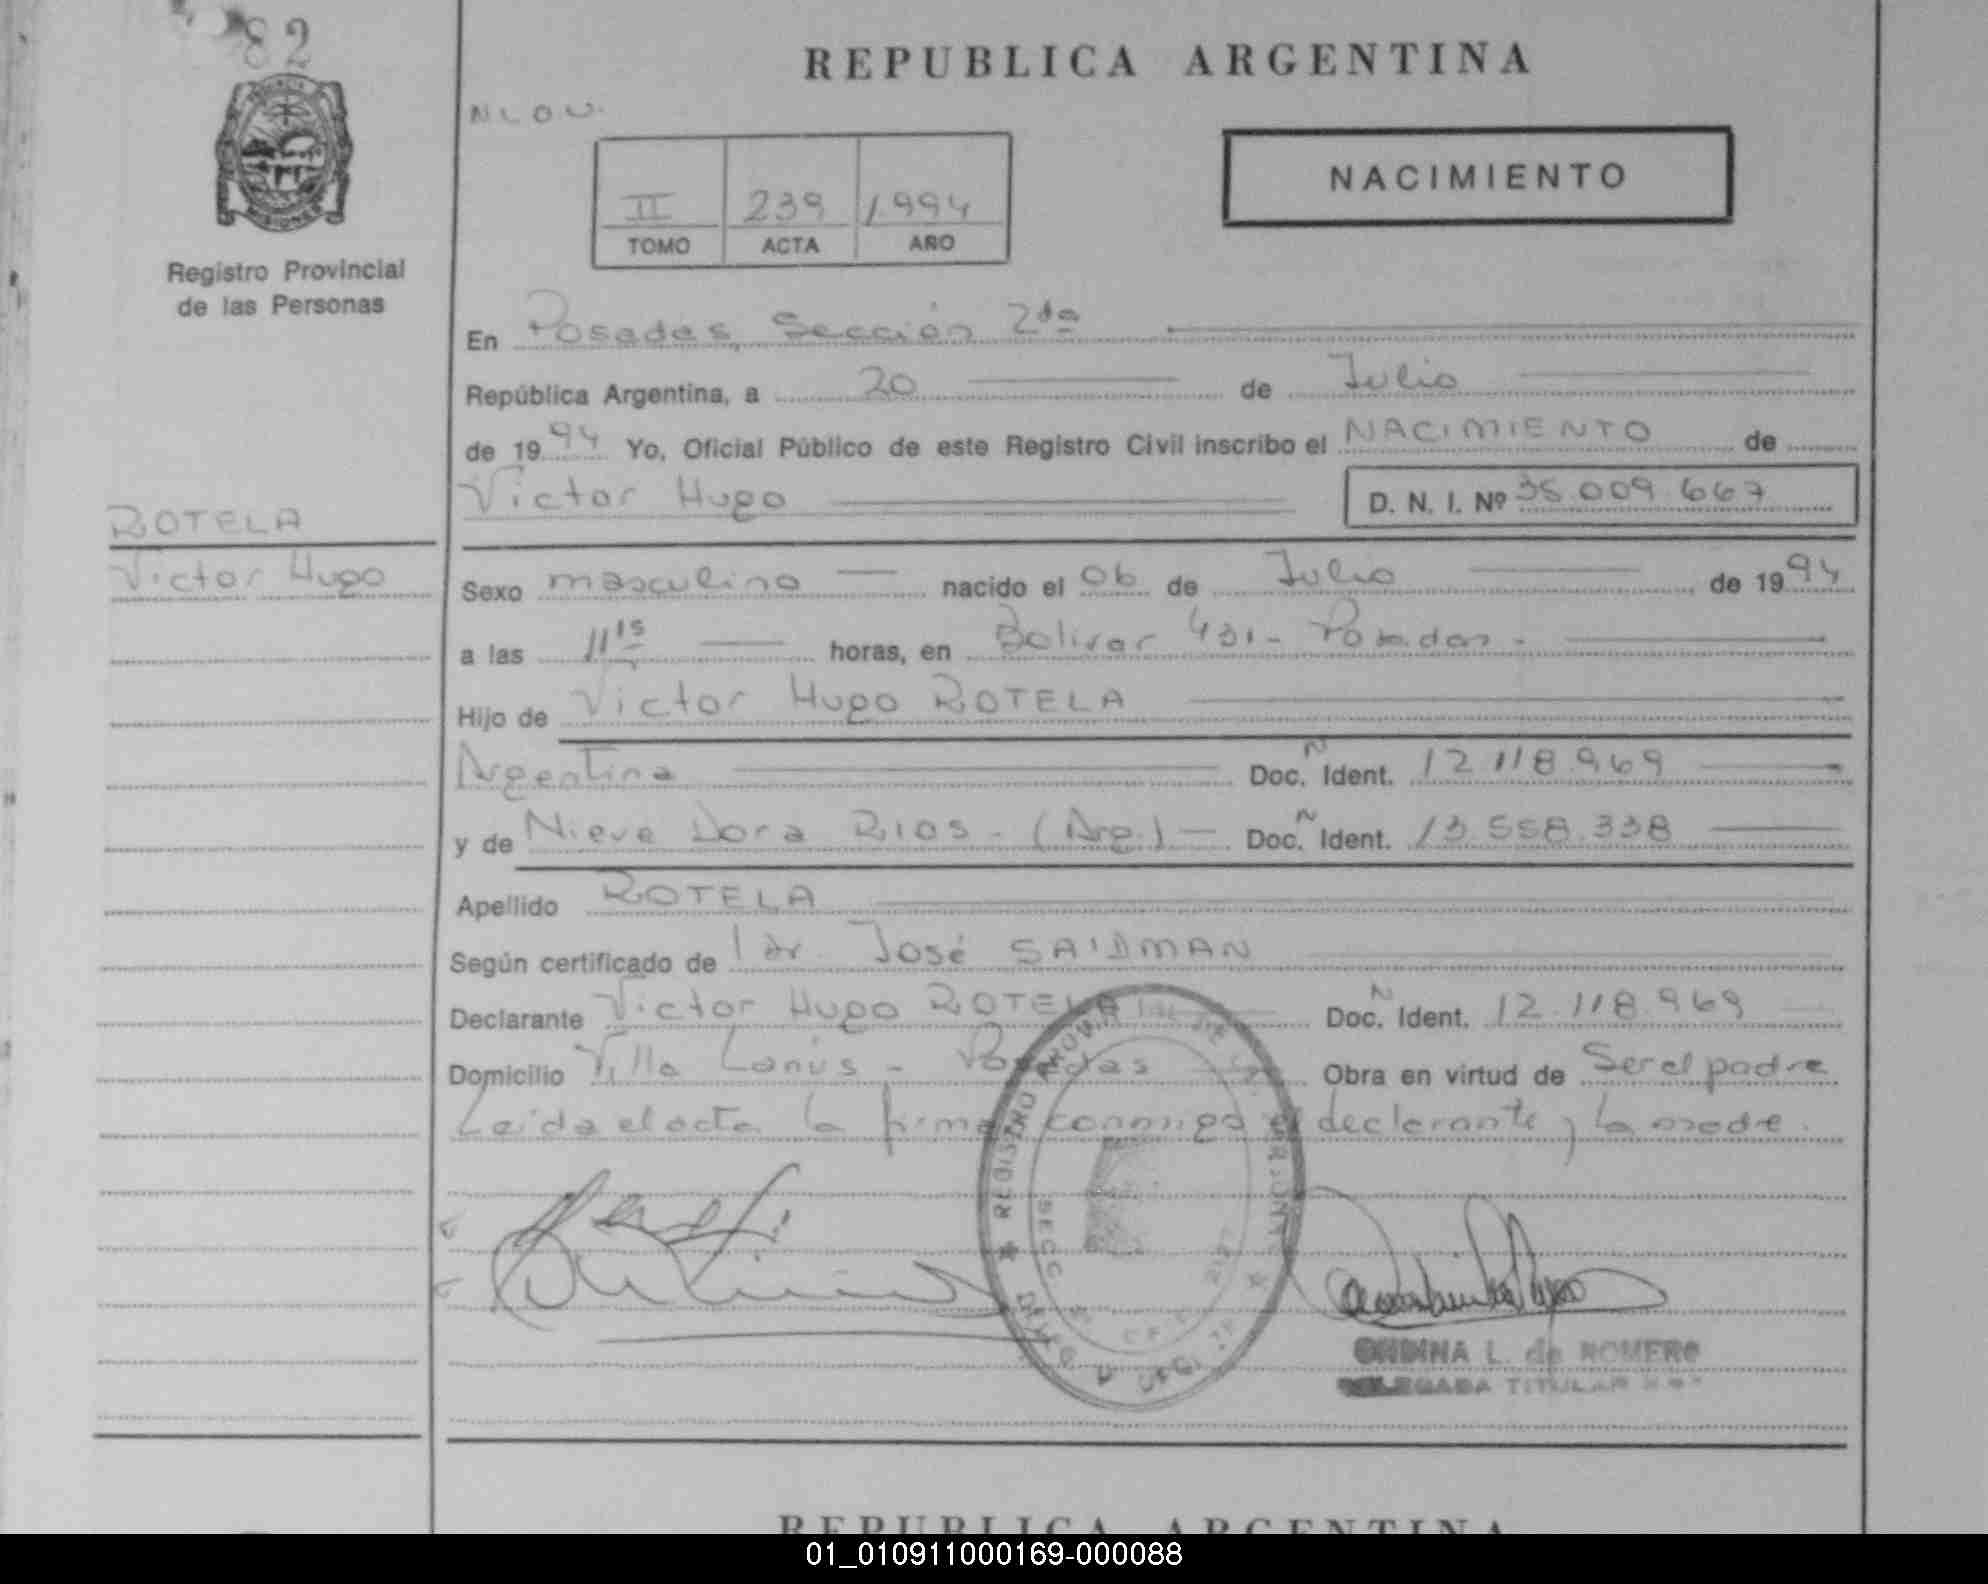 82
REPUBLICA ARGENTINA
NLOU.
II 239 1.994
TOMO ACTA AÑO
NACIMIENTO
MISIONES
Registro Provincial
de las Personas
En Posadas, Sección 2da
República Argentina, a 20 de Julio
de 1994 Yo, Oficial Público de este Registro Civil inscribo el NACIMIENTO de
Victor Hugo D. N. I. Nº 35.009.667
ROTELA
Victor Hugo
Sexo masculino nacido el 06 de Julio de 1994
a las 11 15 horas, en Bolivar 431 - Posadas -
Hijo de Victor Hugo ROTELA
Argentina Doc. N Ident. 12.118.969
y de Nieve Dora RIOS - (Arg.) Doc. N Ident. 13.558.338
Apellido ROTELA
Según certificado de l dr. José SAIDMAN
Declarante Victor Hugo ROTELA Doc. N Ident. 12.118.969
Domicilio Villa Lanús - Posadas Obra en virtud de Ser el padre
Leida el acta la firma conmigo el declarante y la madre.
REGISTRO PROVINCIAL DE LAS PERSONAS
SECC
ONDINA L. de ROMERO
DELEGADA TITULAR
REPUBLICA ARGENTINA
01_010911000169-000088